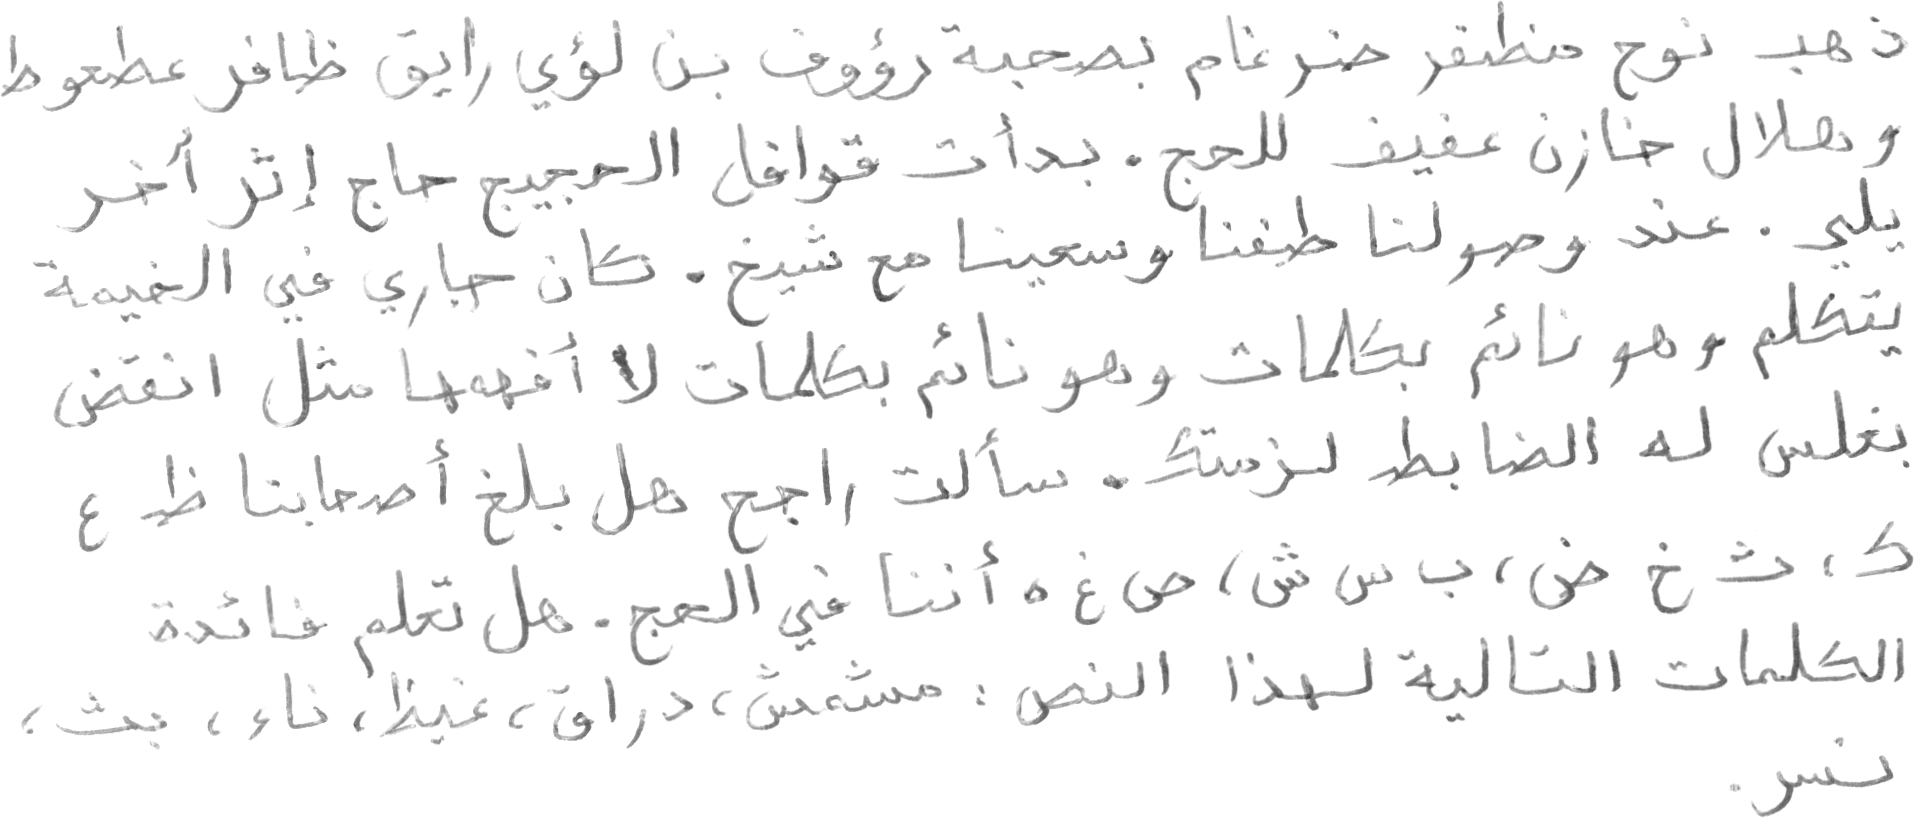 ذهب نوح مظفر ضرغام بصحبة رؤوف بن لؤي رايق ظافر عطعوط
وهلال خازن عفيف للحج. بدأت قوافل الحجيج حاج إثر آخر
يلي. عند وصولنا طفنا وسعينا مع شيخ. كان جاري في الخيمة
يتكلم وهو نائم بكلمات وهو نائم بكلمات لا أفهمها مثل انقض
بغلس له الضابط لزمتك. سألت راجح هل بلغ أصحابنا ظ ع
ك، ث خ ض، ب س ش، ص غ ه أننا في الحج. هل تعلم فائدة
الكلمات التالية لهذا النص: مشمش، دراق، غيظ، ناء، بث،
نسر.